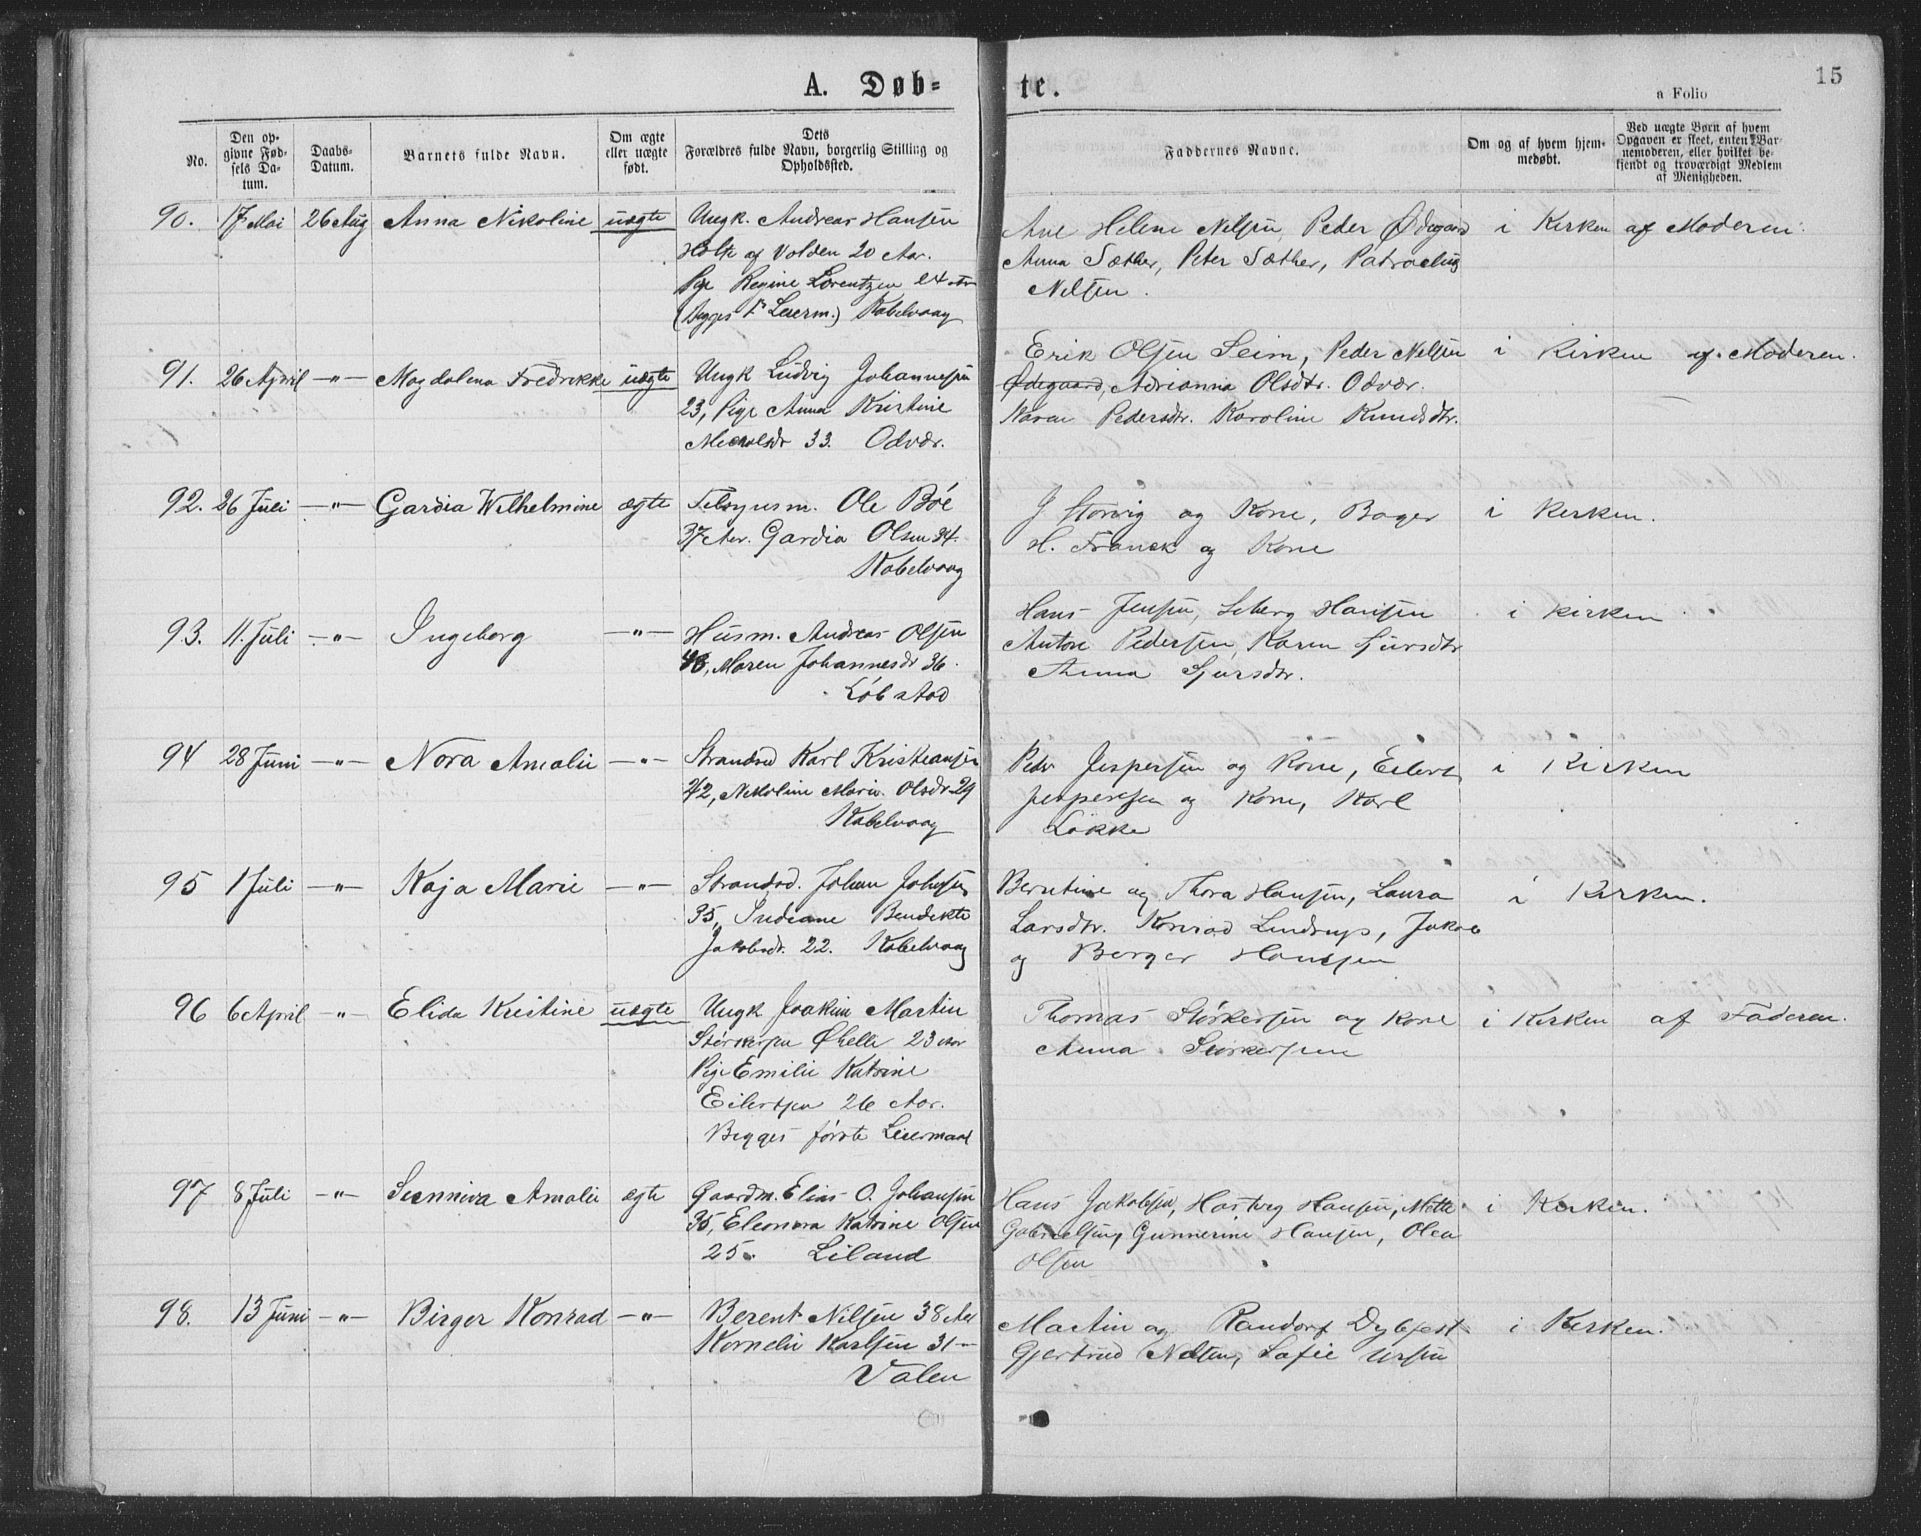 A. Døb-
te.
15
a Folio
No.
Den op-
givne Fød-
sels Da-
tum.
Daabs-
Datum.
Barnets fulde Navn.
Om ægte
eller uægte
født.
Dets
Forældres fulde Navn, borgerlig Stilling og
Opholdssted.
Faddernes Navne.
Om og af hvem hjem-
medøbt.
Ved uægte Børn af hvem
Opgaven er skeet, enten Bar-
nemoderen, eller hvilket be-
kjendt og troværdigt Medlem
af Menigheden.
90. 17 Mai 26 Aug Anna Nikoline uægte Ungk. Andreas Hansen
Holte af Volden 20 Aar.
Pige Regine Lorentzen 24 Aar
(Begges 1ste Leierm.) Kabelvaag
Ane Helene Nilsen, Peder Ødegaard i Kirken af Moderen.
Anna Sæther, Peter Sæther, Patroclus
Nilsen.
91. 26 April -"- Magdalena Fredrikke uægte Ungk Ludvig Johannesen
23, Pige Anna Kristine
Mickelsdr 33. Odvær.
Erik Olsen Seim, Peder Nilsen i Kirken af Moderen.
Ødegaard, Adrianna Olsdtr. Odvær.
Maren Pedersdtr. Karoline Knudsdtr.
92. 26 Juli -"- Gardia Wilhelmine ægte Ole Bóe
37 Aar. Gardia Olsen 34.
Kabelvaag
J Storvig og Kone, Bager i Kirken.
H. Franck og Kone
93. 11. Juli -"- Ingeborg -"- Husm. Andreas Olsen
48, Maren Johannesdr 36.
Lóbstad
Hans Jensen, Seberg Hansen i Kirken
Anton Pedersen, Karen Sjursdtr
Anna Sjursdtr.
94 28 Juni -"- Nora Amalie -"- Strandsd Karl Kristiansen
42, Nikoline Marie Olsdr 29
Kabelvaag
Peder Jespersen og Kone, Eilert i Kirken
Jespersen og Kone, Karl
Løkke
95 1 Juli -"- Kaja Marie -"- Strandsd. Johan Johnsen
35, Indiane Bendikte
Jakobsdr. 22. Kabelvaag
Berntine og Thora Hansen, Laura i Kirken.
Larsdtr. Konrad Lindrup, Jakob
og Berger Hansen
96 6 April -"- Elida Kristine uægte Ungk Joakim Martin
Størkersen Ørelle 23 Aar
Pige Emilie Katrine
Eilertsen 26 Aar.
Begges første Leiermaal
Thomas Størkersen og Kone i Kirken af Faderen.
Anna Størkersen
97 8 Juli -"- Sunniva Amalie ægte Gaardm. Elias O. Johansen
35, Eleonora Katrine Olsen
25. Liland
Hans Jakobsen, Hartvig Hansen, Mette i Kirken.
Gabrielsen, Gunnerine Hansen, Olea
Olsen
98. 13 Juni -"- Birger Konrad -"- Berent Nilsen 38 Aar
Kornelie Karlsen 31 -
Valen
Martin og Randorf Dybfest i Kirken.
Gjertrud Nilsen, Sofie Ursin